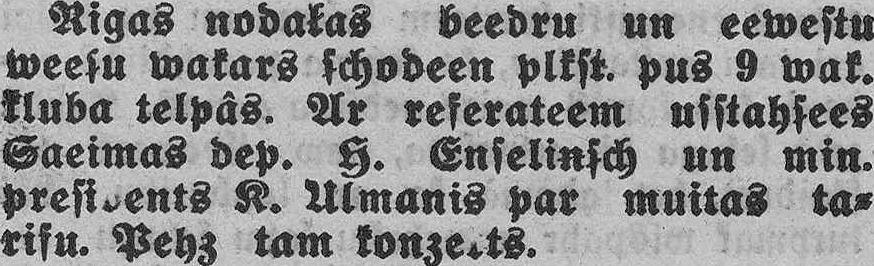 Rigas nodakas beedru un eeweſtu
weeſu wakars ſchodeen plkſt. pus 9 wak.
kluba telpâs. Ar referateem uſſtahſees
Saeimas dep. H. Enſelinſch un min.
preſidents K. Ulmanis par muitas ta-
rifu. Pehz tam konzerts.